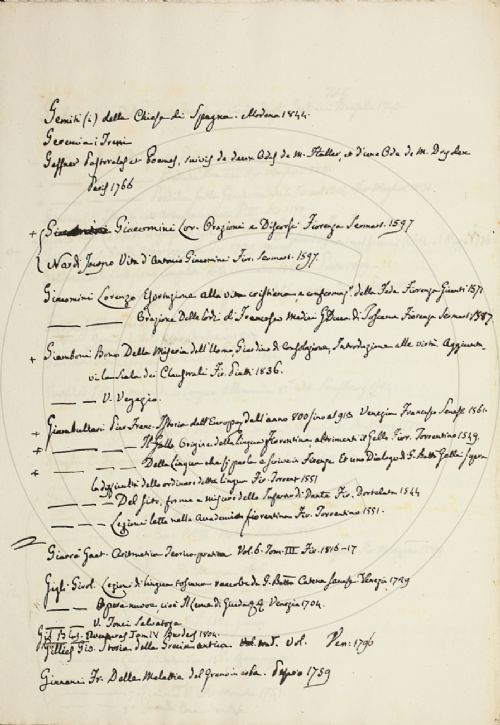 Gemiti (i) della Chiesa di Spagna. Modena 1844.
Geremia i Treni
Gessner Pastorales et Poemes, suivis de deux Odes de M. Haller, et d'une Ode de M. Dryden
Paris 1766
+ Giacomini Lor. Orazioni e Discorsi Fiorenza Sermart. 1597
Nardi Jacopo Vita d'Antonio Giacomini Fior. Sermart. 1597.
Giacomini Lorenzo Esortazione alla vita cristiana, e della Fede Fiorenza Giunti 1571
— — Orazione Delle lodi di Francesco Medici G. Duca di Toscana Fiorenza Sermart. 1587.
+ Giamboni Bono Della Miseria dell'Uomo Giardino di Consolazione, Introduzione alle virtù Aggiunta
vi la Scala dei Claustrali Fir. Piatti 1836.
— — V. Vegezio.
+ Giambullari Pier Franc. Istoria dell'Europa dall'anno 800 fino al 913 Venezia Francesco Senese 1561.
+ — — Il Gello Origine della lingua fiorentina altrimenti il Gello Fior. Torrentino 1549.
+ — — Della Lingua che si parla e scrive in Firenze Et uno Dialogo di G. Batt. Gelli sopra
la difficultà dello ordinare detta lingua Fir. Torrent 1551
— — Del sito, forma e misure dello Inferno di Dante Fir. Dortelata 1544
— — Lezioni lette nella Accademia fiorentina Fir. Torrentino 1551.
Giarrè Gaet. Aritmetica Teorico-pratica Vol. 6. Tom. III Fir. 1816-17
Gigli Girol. Lezioni di lingua toscana raccolte da G. Batta Catena Venezia 1729
— — Opere nuove, cioè Venezia 1704.
V. Toni Salvatore
Gil Blas Tom IV 1804.
Gillies Gio. Storia della Grecia antica Vol. Ven: 1796
Ginanni Fr. Della Malattia del Grano in erba. Pesaro 1759